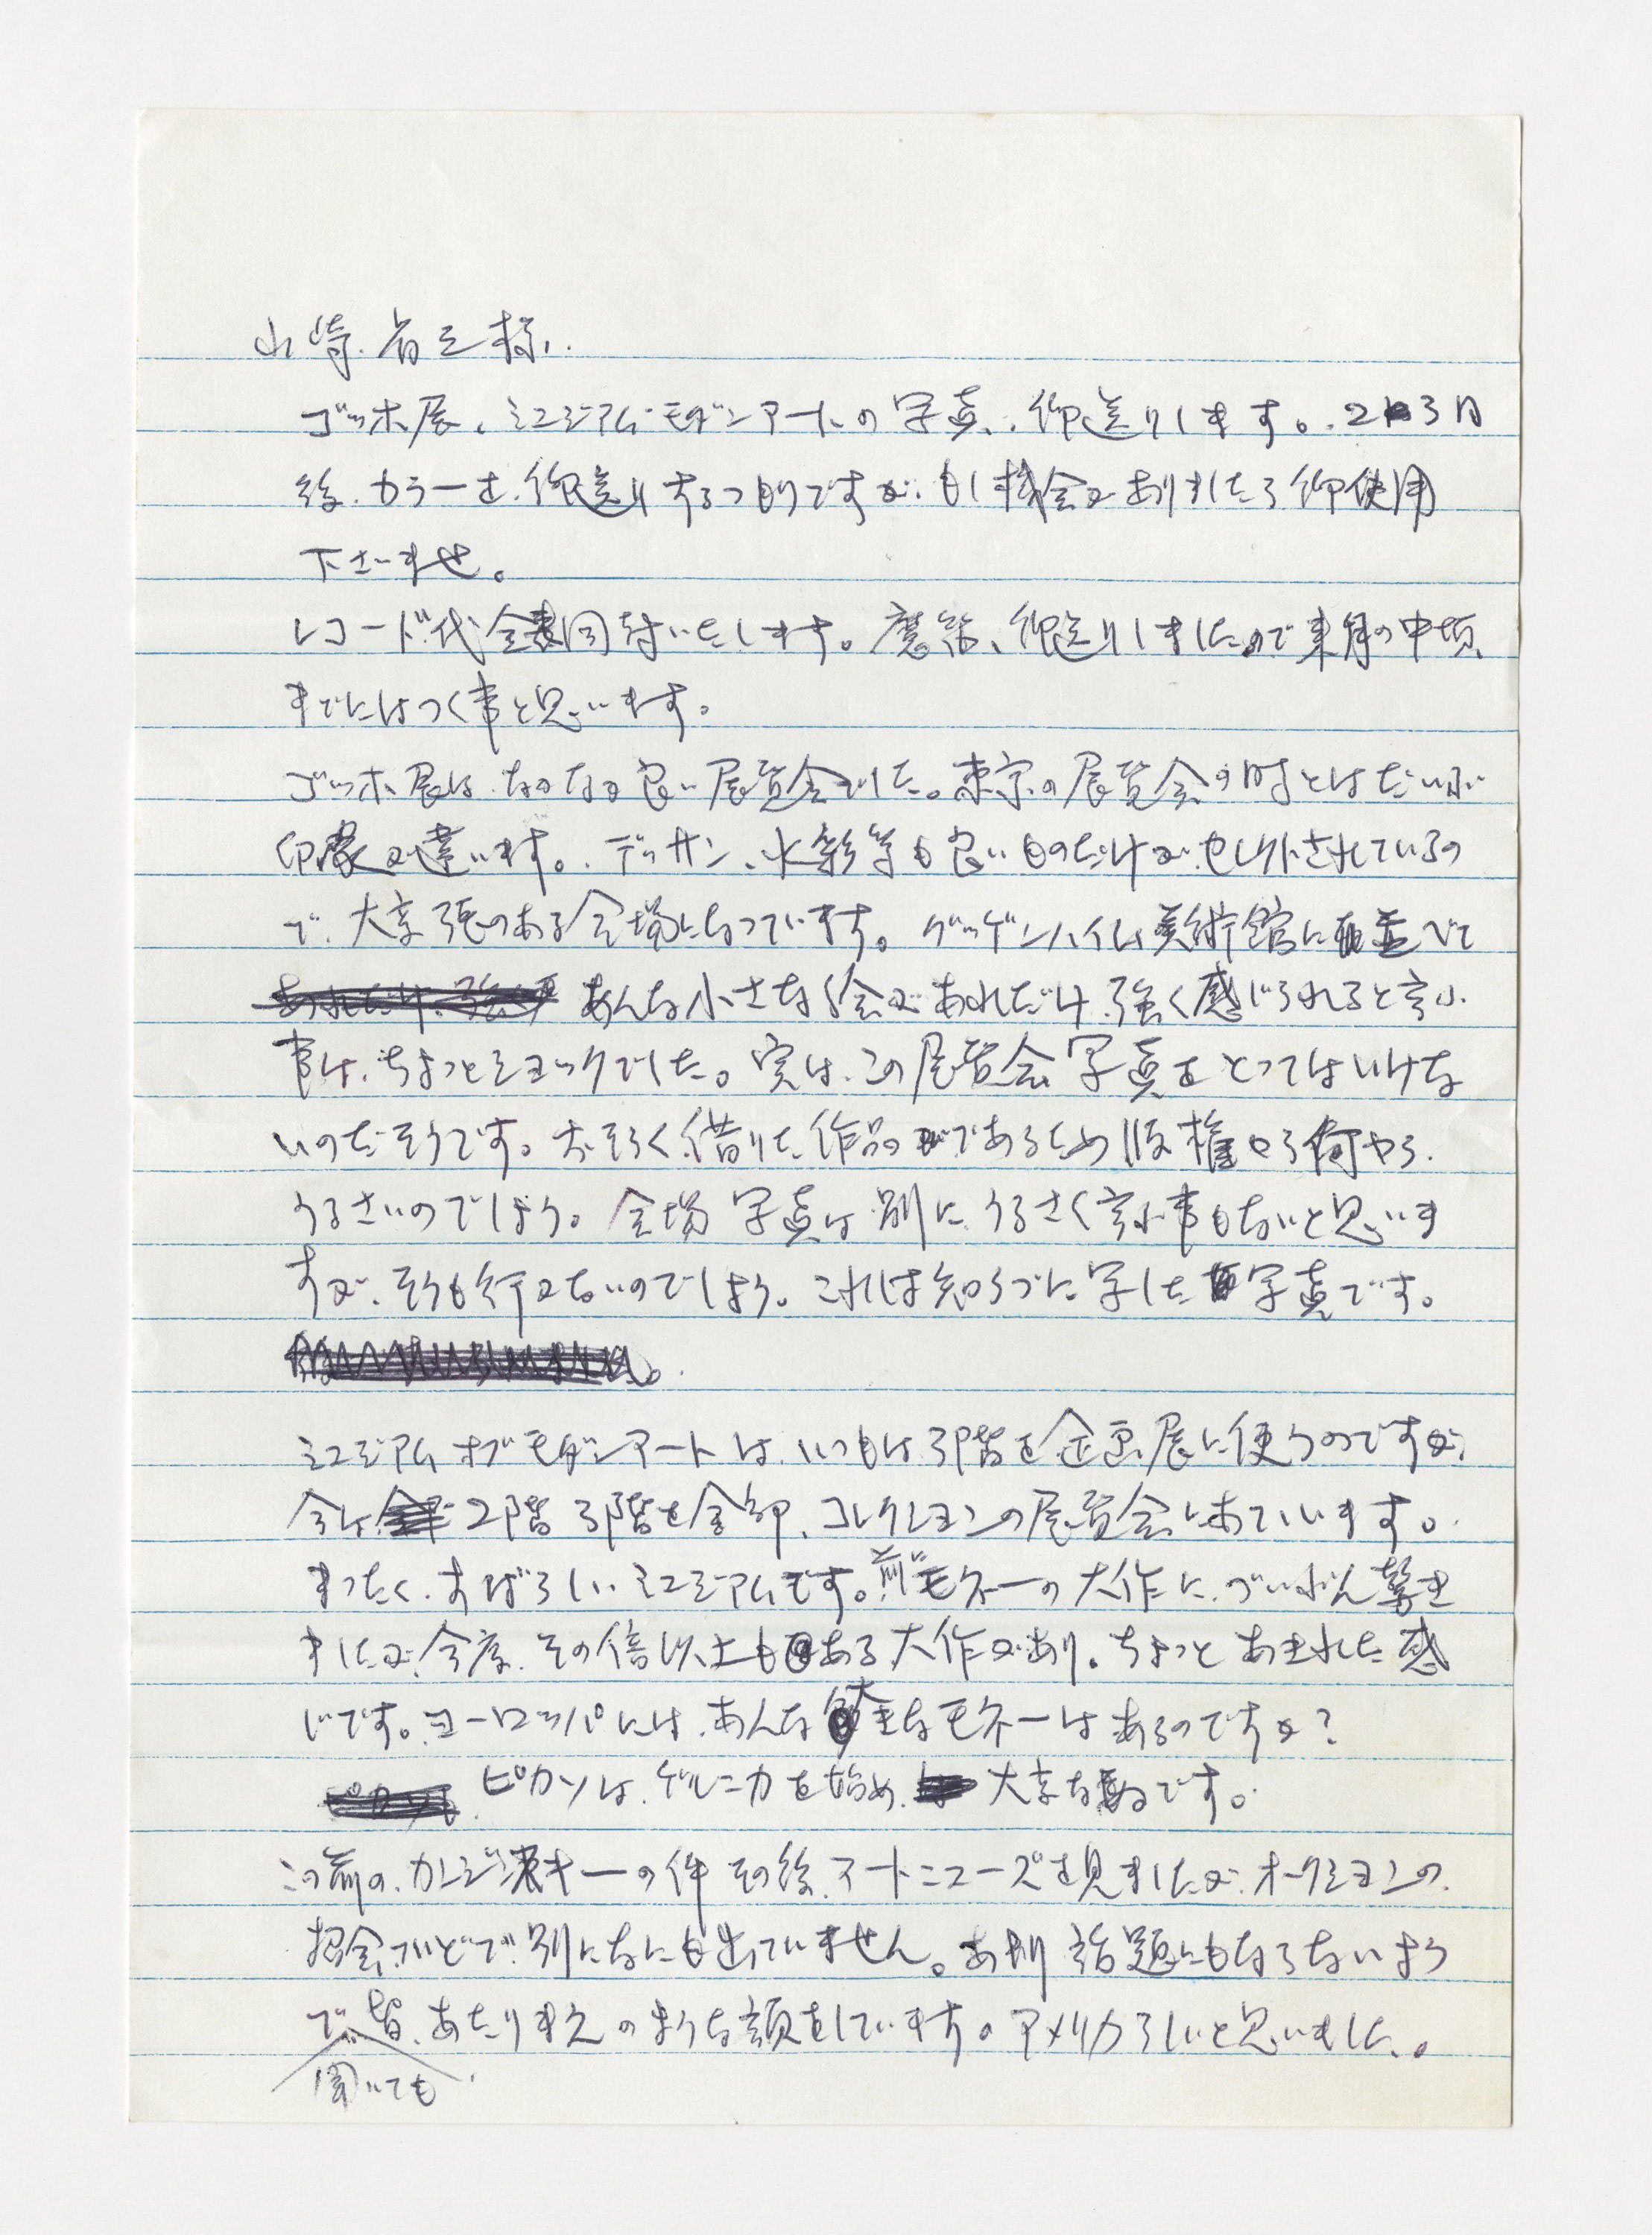 山崎省三様、
ゴッホ展、ミュジアムモダンアートの写真、御送りします。2、3日
後、カラーを御送りするつもりですが、もし機会がありましたら御使用
下さいませ。
レコード代金同封いたします。御送りしましたので来月の中頃、
までにはつく事と思います。
ゴッホ展はなかなか良い展覧会でした。東京の展覧会の時とはだいぶ
印象が違います。デッサン、水彩等も良いものだけがセレクトされているの
で、大変張のある会場になっています。グッゲンハイム美術館に並べて
あんな小さな絵があれだけ強く感じられると言ふ
事は、ちょっとショックでした。実は、この展覧会写真をとってはいけな
いのだそうです。おそらく借りた作品であるため版権やら何やら
うるさいのでしょう。会場写真は別にうるさく言ふ事もないと思いま
すが、そうも行かないのでしょう。これは知らづに写した写真です。
ミュジアムオブモダンアートは、いつもは3階を企画展に使うのですが、
今は2階3階を全部、コレクションの展覧会にあてています。
まったくすばらしいミュジアムです。前モネーの大作にづいぶん驚き
ましたが、今度、その倍以上もある大作があり、ちょっとあきれた感
じです。ヨーロッパには、あんな大きなモネーはあるのですか?
ピカソは、ゲルニカを始め、大変な数です。
この前の、カンジンスキーの件その後、アートニュースを見ましたが、オークションの
紹会などで別になにも出ていません。あまり話題にもならないよう
で皆、あたりまえのような顔をしています。アメリカらしいと思いました。
聞いても